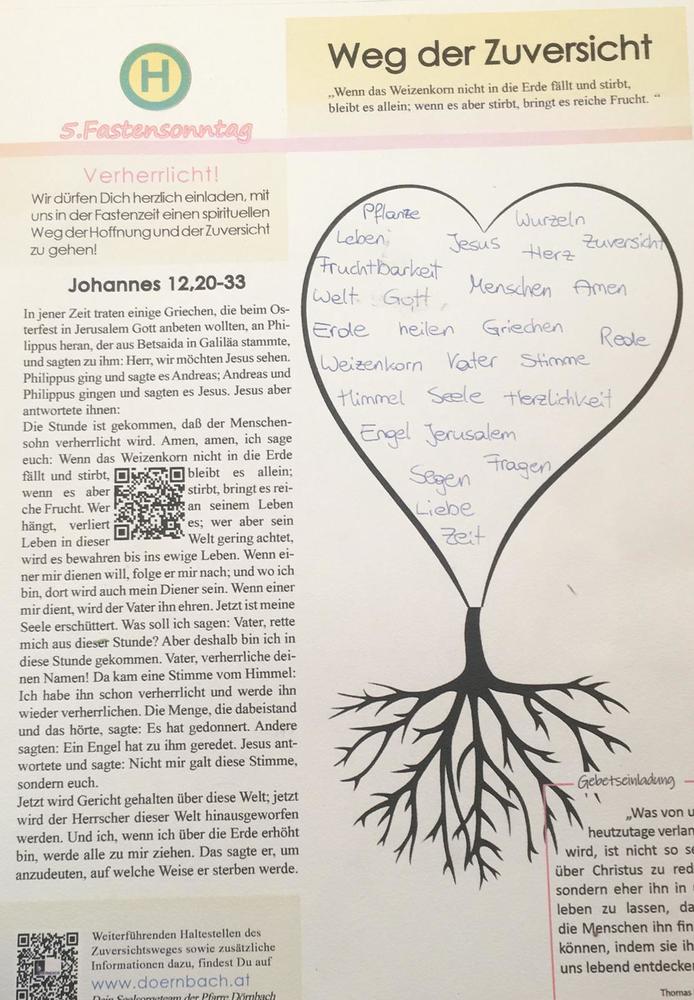 H
5.Fastensonntag
Weg der Zuversicht
„Wenn das Weizenkorn nicht in die Erde fällt und stirbt,
bleibt es allein; wenn es aber stirbt, bringt es reiche Frucht. “
Verherrlicht!
Wir dürfen Dich herzlich einladen, mit
uns in der Fastenzeit einen spirituellen
Weg der Hoffnung und der Zuversicht
zu gehen!
Johannes 12,20-33
In jener Zeit traten einige Griechen, die beim Os-
terfest in Jerusalem Gott anbeten wollten, an Phi-
lippus heran, der aus Betsaida in Galiläa stammte,
und sagten zu ihm: Herr, wir möchten Jesus sehen.
Philippus ging und sagte es Andreas; Andreas und
Philippus gingen und sagten es Jesus. Jesus aber
antwortete ihnen:
Die Stunde ist gekommen, daß der Menschen-
sohn verherrlicht wird. Amen, amen, ich sage
euch: Wenn das Weizenkorn nicht in die Erde
fällt und stirbt, bleibt es allein;
wenn es aber stirbt, bringt es rei-
che Frucht. Wer an seinem Leben
hängt, verliert es; wer aber sein
Leben in dieser Welt gering achtet,
wird es bewahren bis ins ewige Leben. Wenn ei-
ner mir dienen will, folge er mir nach; und wo ich
bin, dort wird auch mein Diener sein. Wenn einer
mir dient, wird der Vater ihn ehren. Jetzt ist meine
Seele erschüttert. Was soll ich sagen: Vater, rette
mich aus dieser Stunde? Aber deshalb bin ich in
diese Stunde gekommen. Vater, verherrliche dei-
nen Namen! Da kam eine Stimme vom Himmel:
Ich habe ihn schon verherrlicht und werde ihn
wieder verherrlichen. Die Menge, die dabeistand
und das hörte, sagte: Es hat gedonnert. Andere
sagten: Ein Engel hat zu ihm geredet. Jesus ant-
wortete und sagte: Nicht mir galt diese Stimme,
sondern euch.
Jetzt wird Gericht gehalten über diese Welt; jetzt
wird der Herrscher dieser Welt hinausgeworfen
werden. Und ich, wenn ich über die Erde erhöht
bin, werde alle zu mir ziehen. Das sagte er, um
anzudeuten, auf welche Weise er sterben werde.
Weiterführenden Haltestellen des
Zuversichtsweges sowie zusätzliche
Informationen dazu, findest Du auf
www.doernbach.at
Dein Seelsorgeteam der Pfarre Dörnbach
Pflanze Wurzeln
Leben Jesus Herz Zuversicht
Fruchtbarkeit
Welt Gott Menschen Amen
Erde heilen Griechen Rede
Weizenkorn Vater Stimme
Himmel Seele Herzlichkeit
Engel Jerusalem
Segen Fragen
Liebe
Zeit
Gebetseinladung
„Was von u
heutzutage verlan
wird, ist nicht so se
über Christus zu red
sondern eher ihn in
leben zu lassen, da
die Menschen ihn fin
können, indem sie ih
uns lebend entdecke
Thomas